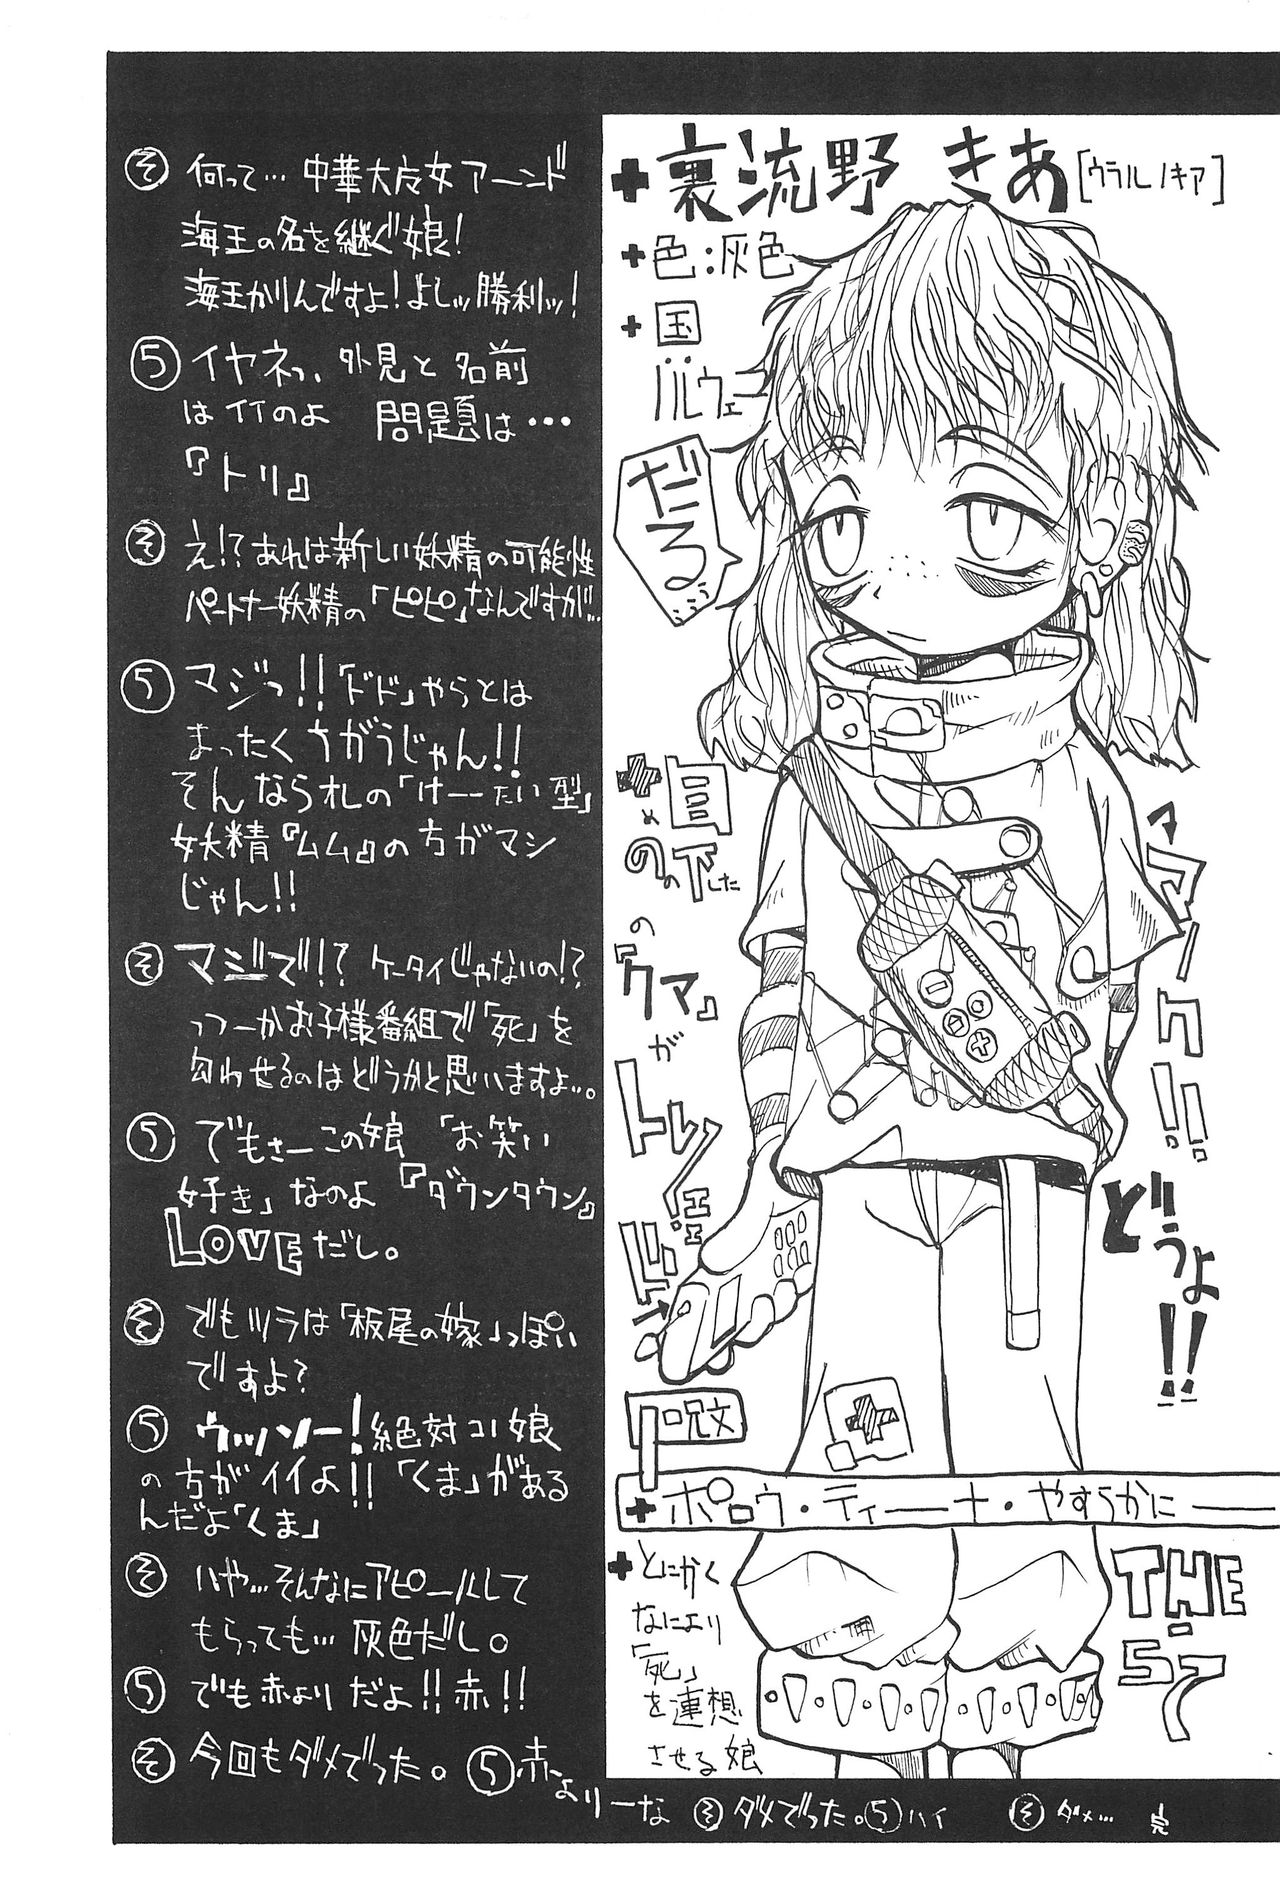 そ 何って… 中華大好女アーンド
海王の名を継ぐ娘!
海王かりんですよ!よしッ勝利ッ!
5 イヤネっ、外見と名前
はイイのよ 問題は…
『トリ』
そ え!?あれは新しい妖精の可能性
パートナー妖精の「ピピ」なんですが…
5 マジっ!!「ドド」やらとは
まったくちがうじゃん!!
そんなられの「けーたい型」
妖精『ムム』の方がマシ
じゃん!!
そ マジで!? ケータイじゃないの!?
っつーかお子様番組で「死」を
匂わせるのはどうかと思いますよ…。
5 でもさーこの娘 「お笑い
好き」なのよ『ダウンタウン』
LOVEだし。
そ でもツラは「板尾の嫁」っぽい
ですよ?
5 ウッソー!絶対コノ娘
の方がイイよ!!「くま」がある
んだよ「くま」
そ いや…そんなにアピールして
もらっても… 灰色だし。
5 でも赤よりだよ!!赤!!
そ 今回もダメでった。 5 赤
よりーな そ ダメでった。5 ハイ そ ダメ… 完
裏流野 きあ [ウラルノキア]
色:灰色
国
:
ノルウェー
だるぅぅ…
目の下の
め のした
『クマ』が
トレンド
マアーク!!
どうよ!!
呪文
ポロウ・ティーナ・やすらかに
とにかく
なにより
「死」
を連想
させる娘
THE
57